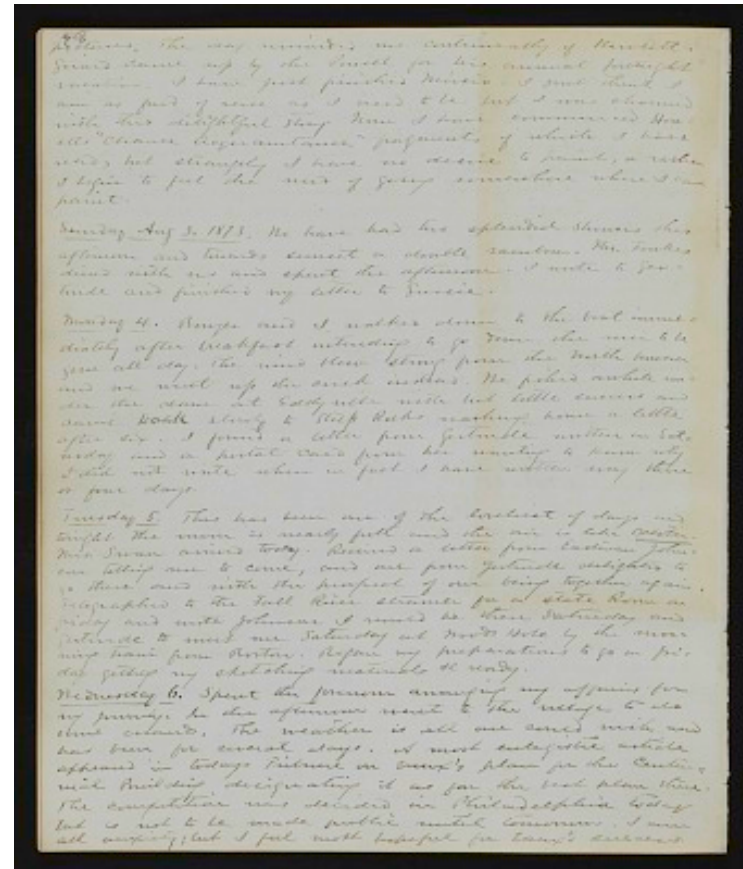 pictures. The day reminded me continually of
Gerard came up by the Small for his annual fortnight
vacation. I have just finished I dont think I
am as fond of as I used to be but I was charmed
with this delightful story. Now I have commenced How-
ells "Chance Acquaintance" fragments of which I have
read; but strangely I have no desire to paint, or rather
I begin to feel the need of going somewhere where I can
paint.
Sunday Aug 3. 1873. We have had two splendid showers this
afternoon and towards sunset a double rainbow. Mr. Forbes
dined with us and spent the afternoon. I wrote to Ger-
trude and finished my letter to
Monday 4. and I walked down to the boat imme-
diately after breakfast intending to go down the river to be
gone all day. The wind blew strong from the North however
and we went up the creek instead. We fished awhile un-
der the dam at Eddyville with but little success and
came back slowly to Sleep Rocks reaching home a little
after six. I found a letter from Gertrude written on Sat-
urday and a postal card from her wanting to know why
I did not write when in fact I have written every three
or four days.
Tuesday 5. This has been one of the loveliest of days and
tonight the moon is nearly full and the air is like
Mrs. Swan arrived today. Received a letter from Eastman John-
son telling me to come, and one from Gertrude delighted to
go there and with the prospect of our being together again.
Telegraphed to the Fall River steamer for a state Room on
Friday and wrote Johnson I would be there Saturday and
Gertrude to meet me Saturday at Woods Hole by the mor-
ning train from Boston. Began my preparations to go on Fri-
day getting my sketching materials &c ready.
Wednesday 6. Spent the forenoon arranging my affairs for
my journey. In the afternoon went to the village to do
some errands. The weather is all one could wish and
has been for several days. A most article
appeared in todays Tribune on Vaux's plan for the Centen-
nial Building designating it as far the best plan there.
The competition was decided in Philadelphia today
but is not to be made public until tomorrow. I am
all anxiety; but I feel most hopeful for Vaux's success